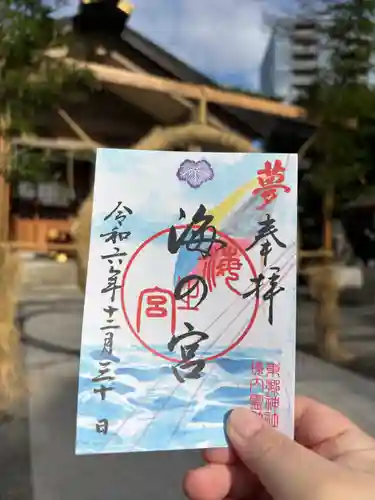 夢
奉拝
海の宮
令和六年十二月三十日
宮
東郷神社
境内